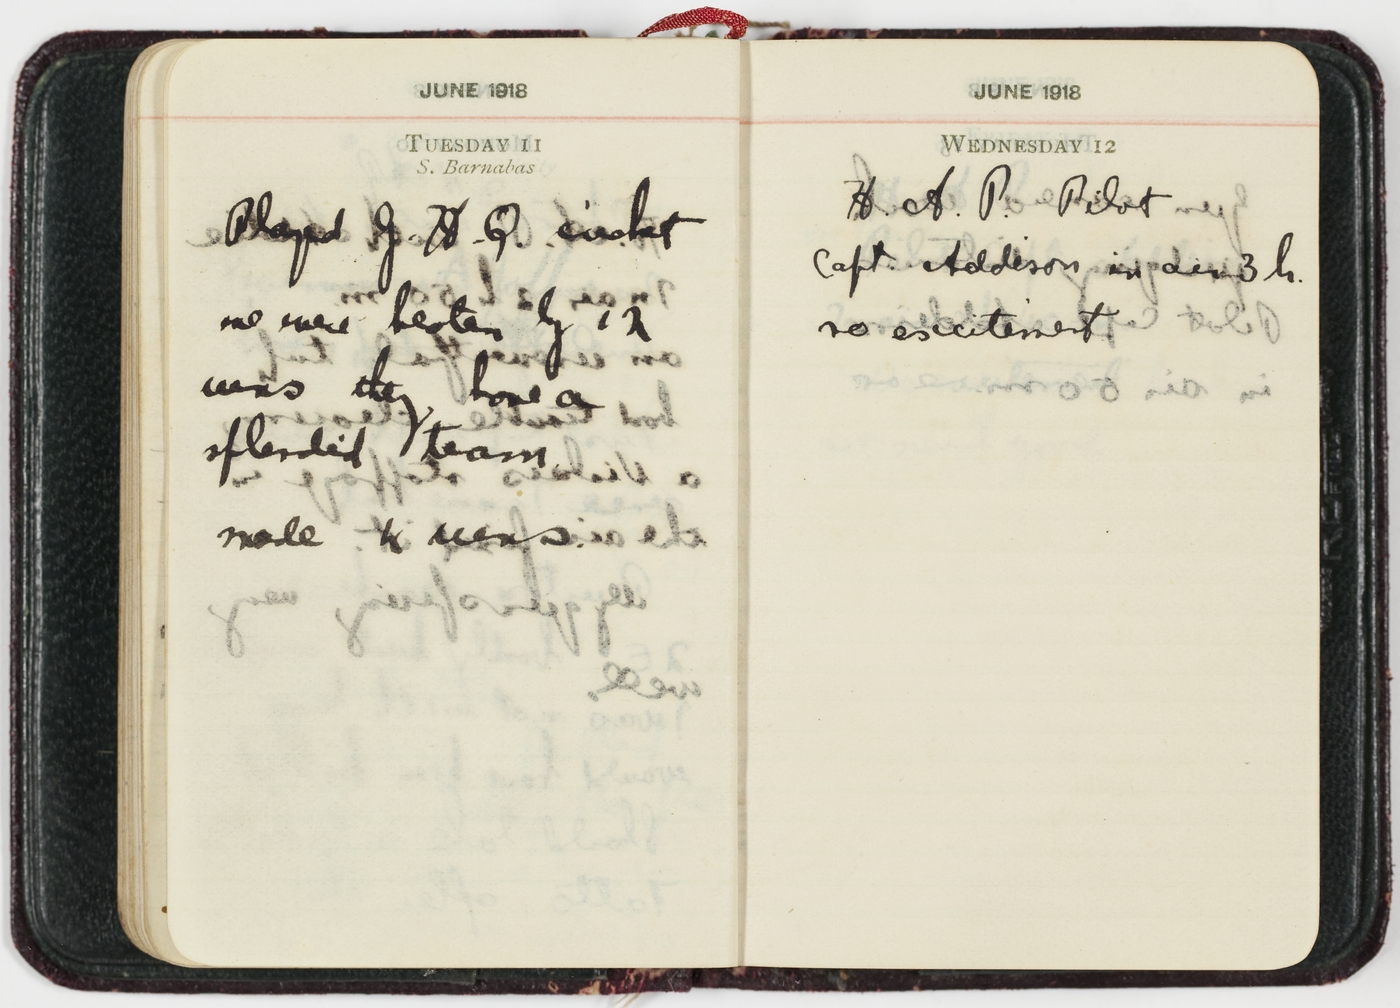 JUNE 1918
TUESDAY 11
S. Barnabas
Played G. H. Q. cricket
we were beaten by 12
runs they have a
splendid team
made 4 runs.
JUNE 1918
WEDNESDAY 12
H. A. P. Pilot
Capt. Addison in air 3 h.
no excitement